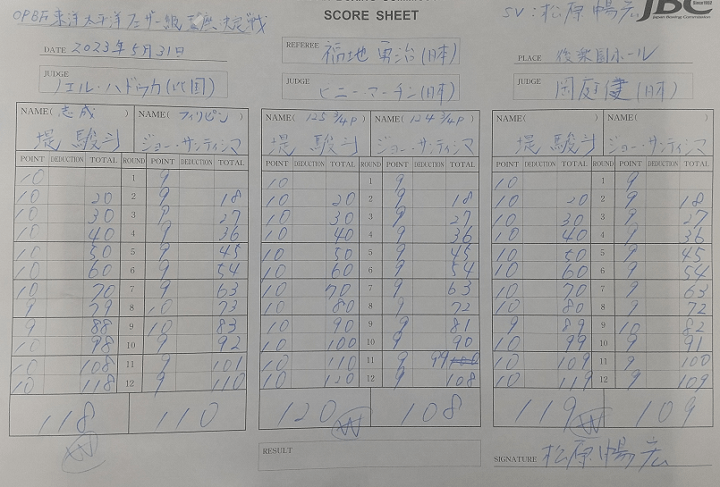 SCORE SHEET
JBC
Japan Boxing Commission
OPBF東洋太平洋フェザー級王座決定戦
SV:松原暢宏
DATE 2023年5月31日
REFEREE 福地勇治(日本)
PLACE 後楽園ホール
JUDGE ノエル・ハドゥカ(比国)
JUDGE ビニー・マーチン(日本)
JUDGE 岡庭健(日本)
NAME(志成) NAME(フィリピン) NAME(125 3/4P) NAME(124 3/4P) NAME( ) NAME( )
堤 駿斗 ジョー・サンティシマ 堤 駿斗 ジョー・サンティシマ 堤 駿斗 ジョー・サンティシマ
POINT DEDUCTION TOTAL ROUND POINT DEDUCTION TOTAL POINT DEDUCTION TOTAL ROUND POINT DEDUCTION TOTAL POINT DEDUCTION TOTAL ROUND POINT DEDUCTION TOTAL
10 1 9 10 1 9 10 1 9
10 20 2 9 18 10 20 2 9 18 10 20 2 9 18
10 30 3 9 27 10 30 3 9 27 10 30 3 9 27
10 40 4 9 36 10 40 4 9 36 10 40 4 9 36
10 50 5 9 45 10 50 5 9 45 10 50 5 9 45
10 60 6 9 54 10 60 6 9 54 10 60 6 9 54
10 70 7 9 63 10 70 7 9 63 10 70 7 9 63
9 79 8 10 73 10 80 8 9 72 10 80 8 9 72
9 88 9 10 83 10 90 9 9 81 9 89 9 10 82
10 98 10 9 92 10 100 10 9 90 10 99 10 9 91
10 108 11 9 101 10 110 11 9 99 10 109 11 9 100
10 118 12 9 110 10 120 12 9 108 10 119 12 9 109
118 110 120 108 119 109
W W W
RESULT
SIGNATURE 松原暢宏